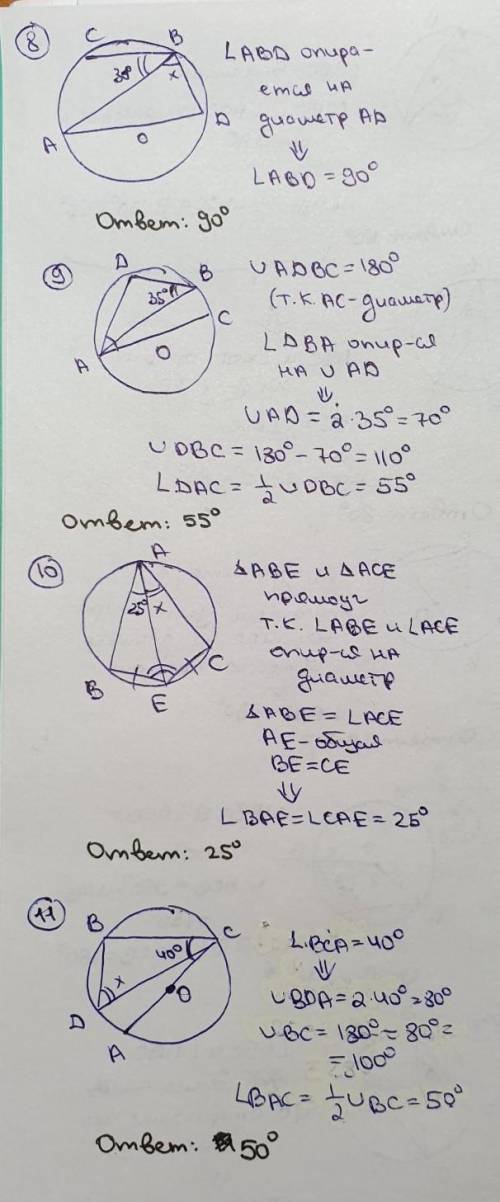 8
C
B
38°
x
A
O
D
∠ABD опира-
ется на
диаметр AD
⇓
∠ABD = 90°
Ответ: 90°
9
D
B
35°
C
A
O
∪ADBC = 180°
(т.к. AC-диаметр)
∠DBA опир-ся
на ∪AD
⇓
∪AD = 2·35° = 70°
∪DBC = 180° − 70° = 110°
∠DAC = 1/2 ∪DBC = 55°
Ответ: 55°
10
A
25°
x
B
C
E
△ABE и △ACE
прямоуг
т.к. ∠ABE и ∠ACE
опир-ся на
диаметр
△ABE = ∠ACE
AE-общая
BE=CE
⇓
∠BAE=∠CAE = 25°
Ответ: 25°
11
B
C
40°
x
O
D
A
∠BCA=40°
⇓
∪BDA=2·40°=80°
∪BC = 180° − 80° =
= 100°
∠BAC = 1/2 ∪BC = 50°
Ответ: 50°